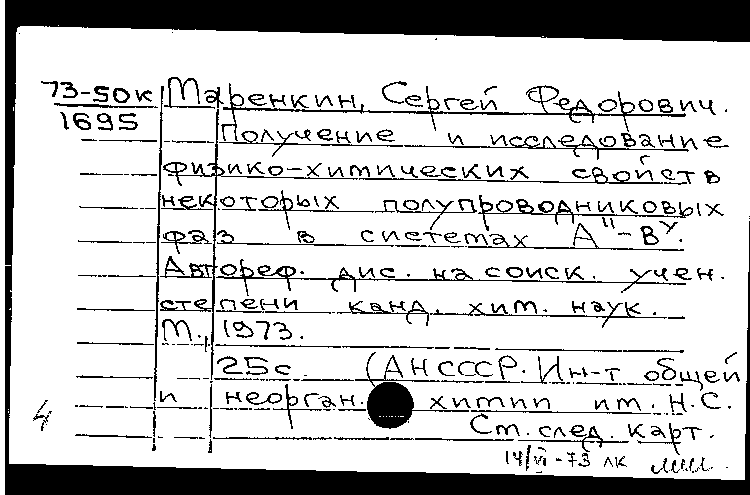 73-50к Маренкин, Сергей Федорович.
1695 Получение и исследование
физико-химических свойств
некоторых полупроводниковых
фаз в системах А^II-В^V.
Автореф. дис. на соиск. учен.
степени канд. хим. наук.
М., 1973.
25с. (АН СССР. Ин-т общей
и неорган. химии им. Н.С.
4 Ст. след. карт.
14/VI-73 лк